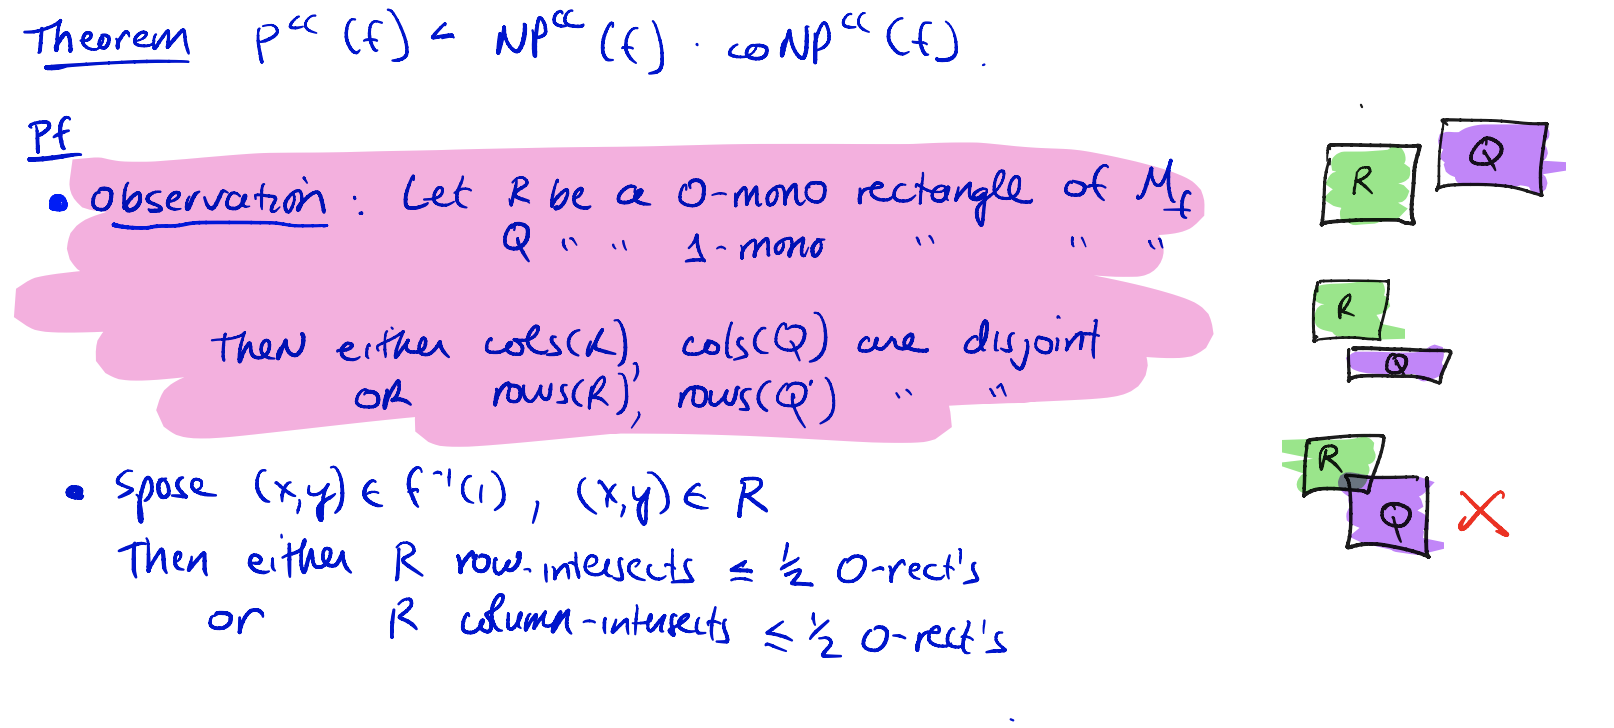 Theorem P^cc (f) < NP^cc (f) · coNP^cc (f).
Pf
• Observation : Let R be a 0-mono rectangle of M_f
Q " " 1-mono " " "
Then either cols(R), cols(Q) are disjoint
OR rows(R), rows(Q) " "
• Spose (x,y) ∈ f⁻¹(1), (x,y) ∈ R
Then either R row-intersects ≤ ½ 0-rect's
or R column-intersects ≤ ½ 0-rect's
R
Q
R
Q
R
Q